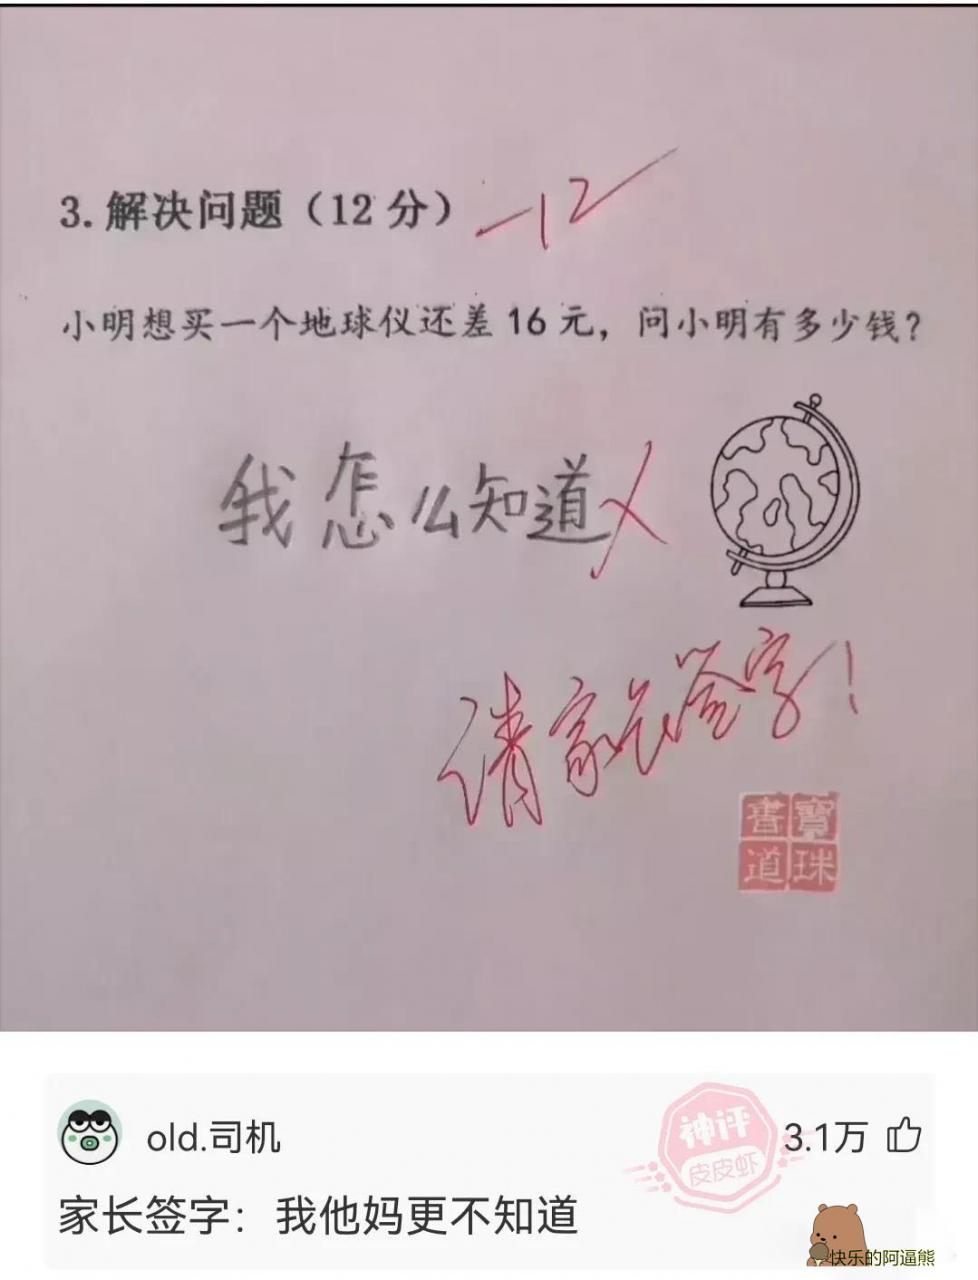 3. 解决问题（12 分） -12
小明想买一个地球仪还差 16 元，问小明有多少钱？
我怎么知道
请家长签字！
書寶
道珠
old.司机
神评
皮皮虾
3.1万
家长签字：我他妈更不知道
快乐的阿逼熊